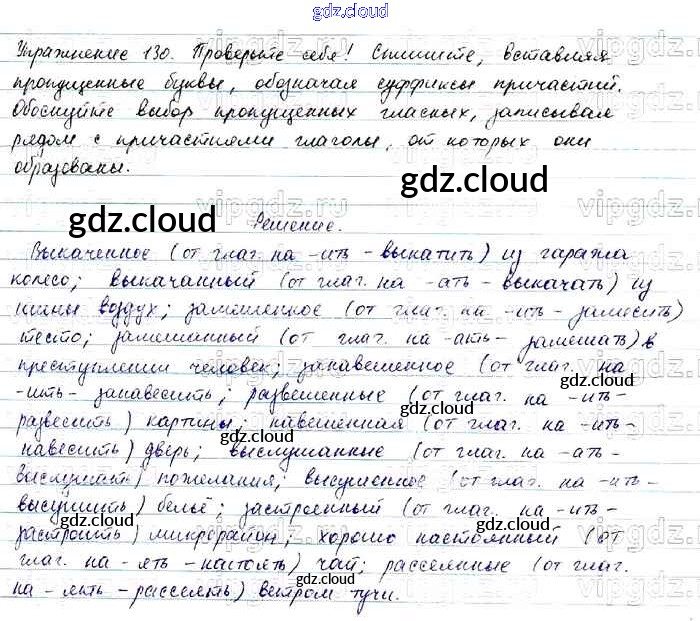 gdz.cloud
Упражнение 130. Проверьте себя! Спишите, вставляя
пропущенные буквы, обозначая суффиксы причастий.
Обоснуйте выбор пропущенных гласных, записывая
рядом с причастиями глаголы, от которых они
образованы.
gdz.cloud
gdz.cloud
Решение.
Выкаченное (от глаг. на -ить - выкатить) из гаража
колесо; выкачанный (от глаг. на -ать - выкачать) из
шины воздух; замешенное (от глаг. на -ить - замесить)
тесто; замешанный (от глаг. на -ать- замешать) в
преступлении человек; занавешенное (от глаг. на
-ить- занавесить; развешенные (от глаг. на -ить-
развесить) картины; навешенная (от глаг. на -ить-
навесить) дверь; выслушанные (от глаг. на -ать-
выслушать) пожелания; высушенное (от глаг. на -ить-
высушить) бельё; застроенный (от глаг. на -ить-
застроить) микрорайон; хорошо настоянный (от
глаг. на -ять -настоять) чай; рассеянные (от глаг.
на -ять - рассеять) ветром тучи.
gdz.cloud
gdz.cloud
gdz.cloud
gdz.cloud
gdz.cloud
gdz.cloud
gdz.cloud
gdz.cloud
gdz.cloud
vipgdz.ru